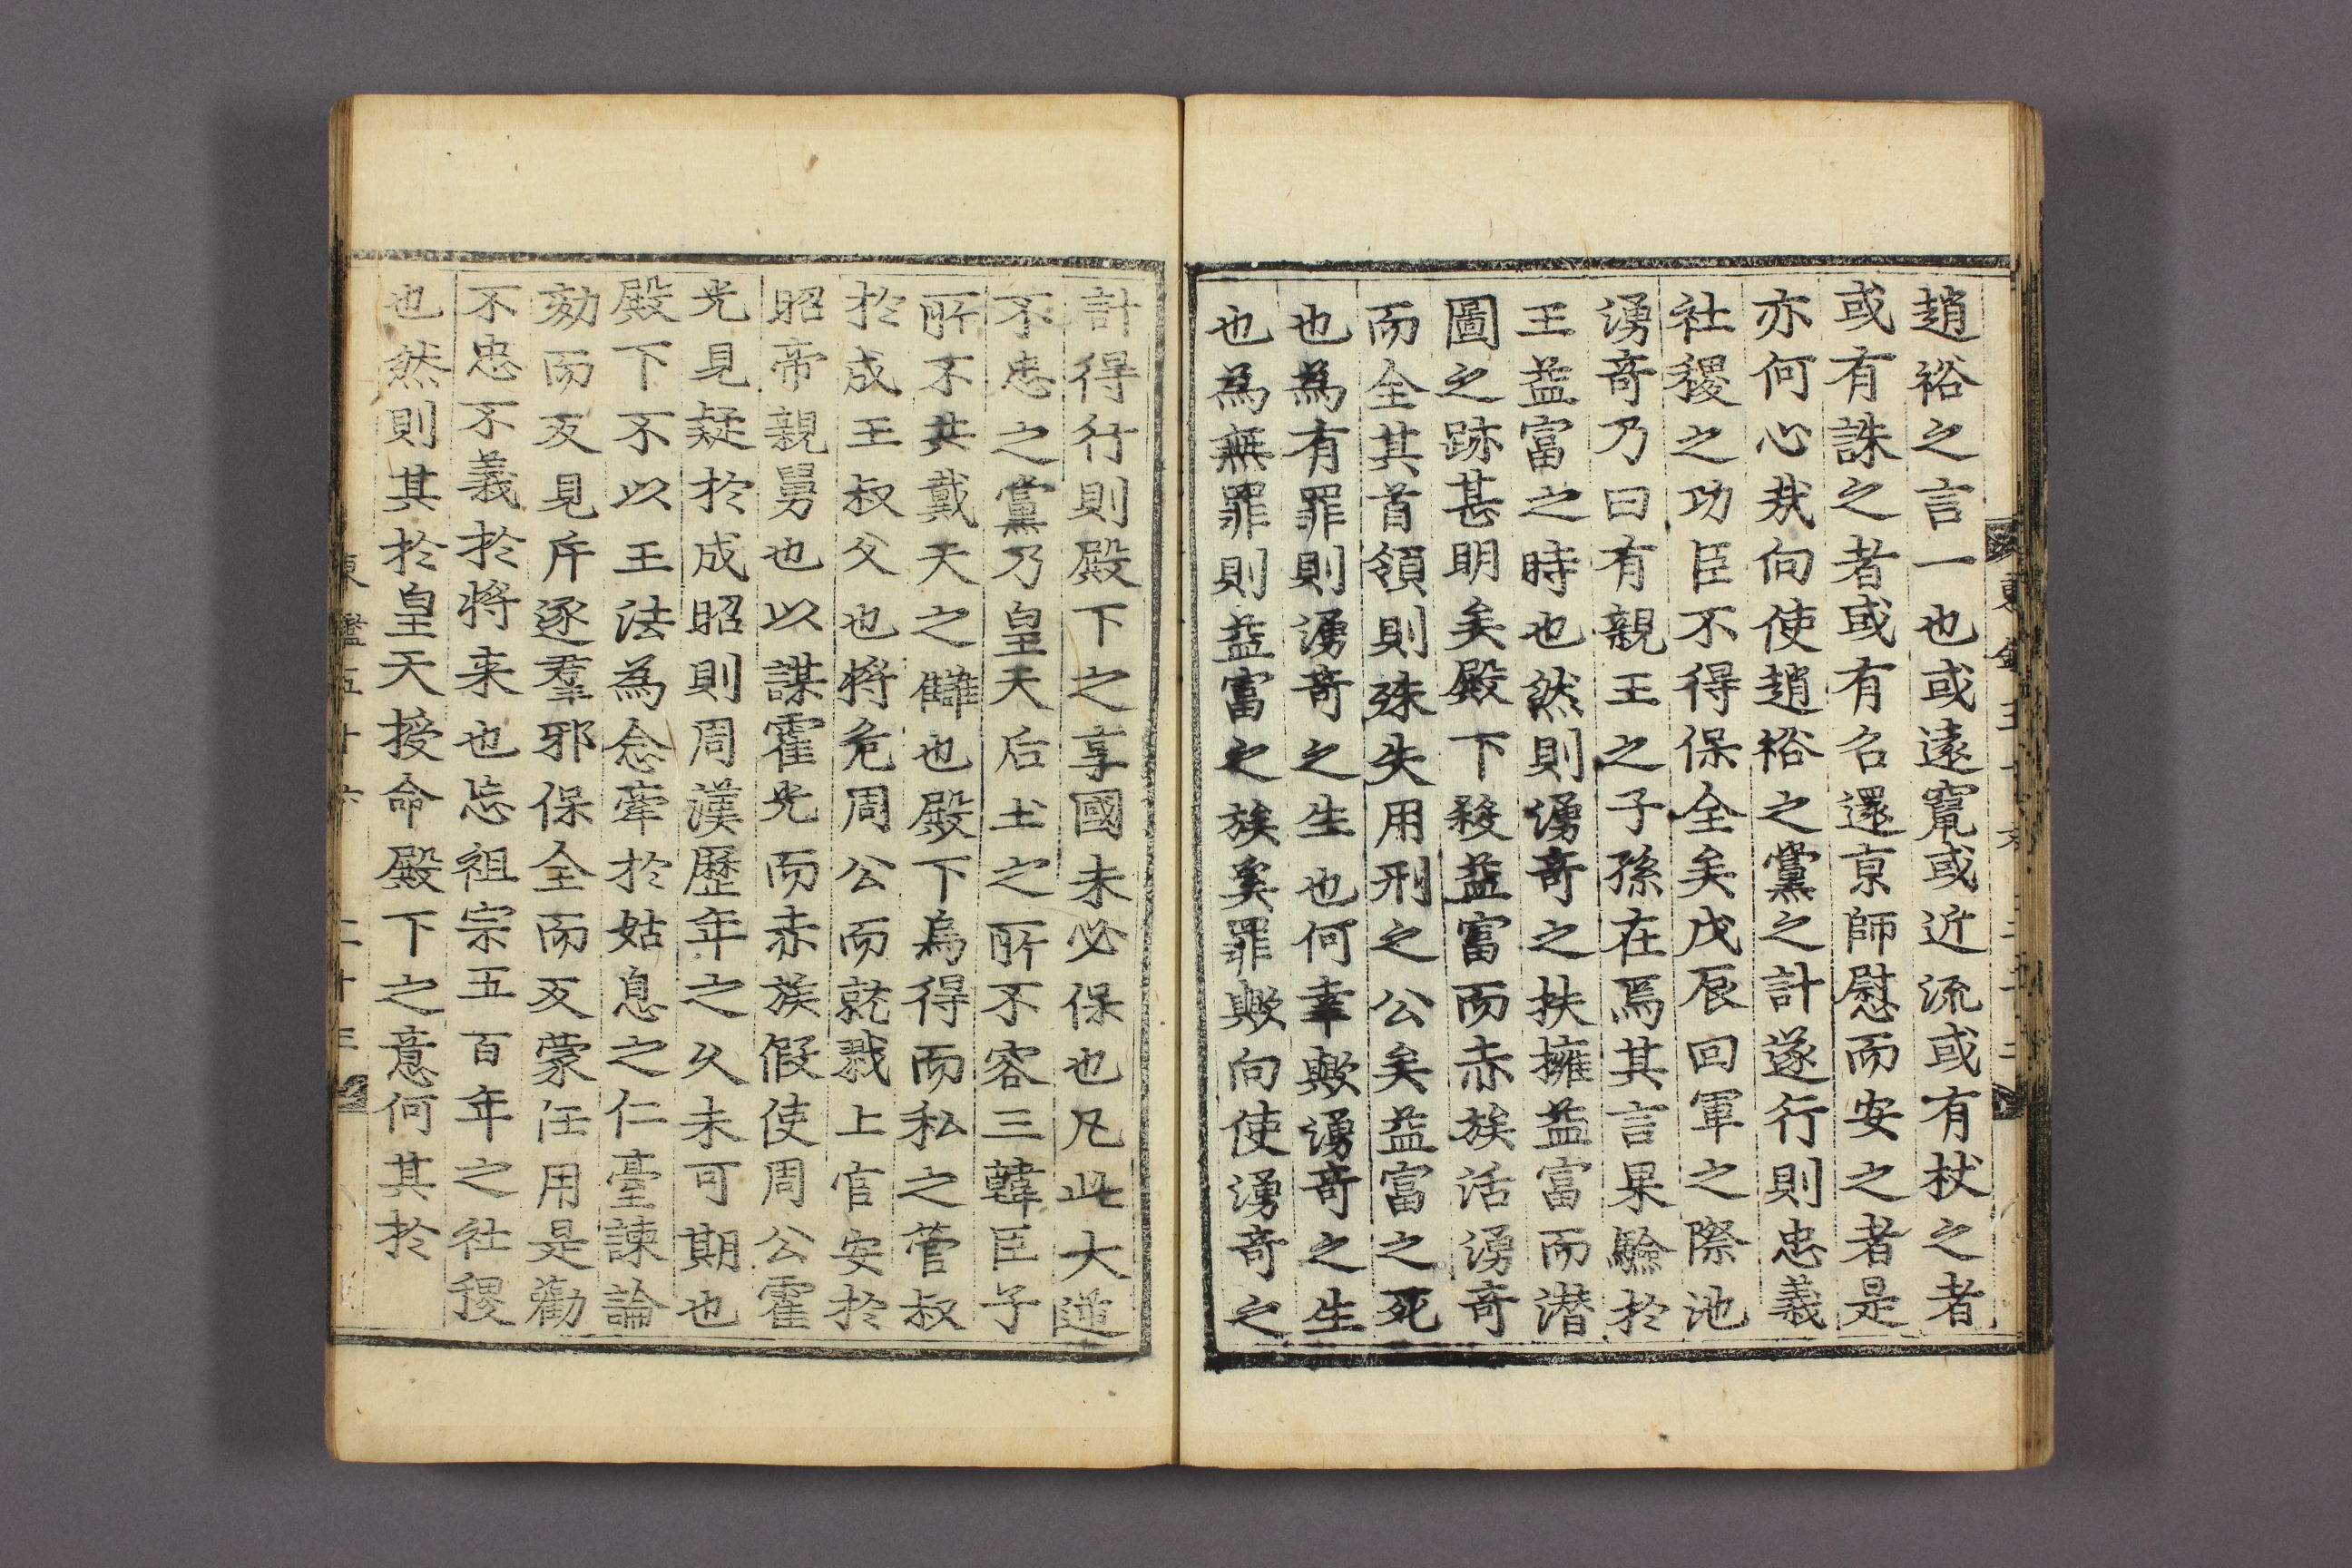 趙裕之言一也或遠竄或近流或有杖之者
或有誅之者或有召還京師慰而安之者是
亦何心㢤向使趙裕之黨之計遂行則忠義
社稷之功臣不得保全矣戊辰回軍之際池
湧竒乃曰有親王之子孫在焉其言果驗於
王益富之時也然則湧竒之扶擁益富而潜
圖之跡甚明矣殿下殺益富而赤族活湧竒
而全其首領則殊失用刑之公矣益富之死
也為有罪則湧竒之生也何幸歟湧竒之生
也為無罪則益富之族奚罪歟向使湧竒之
計得行則殿下之享國未必保也凡此大逆
不忠之黨乃皇天后土之所不容三韓臣子
所不共戴天之讎也殿下焉得而私之管叔
於成王叔父也將危周公而就戮上官安於
昭帝親舅也以謀霍光而赤族假使周公霍
光見疑於成昭則周漢歷年之久未可期也
殿下不以王法為念牽於姑息之仁臺諫論
劾而反見斥逐羣邪保全而反蒙任用是勸
不忠不義於將来也忘祖宗五百年之社稷
也然則其於皇天授命殿下之意何其於
東鑑五十六 二十三